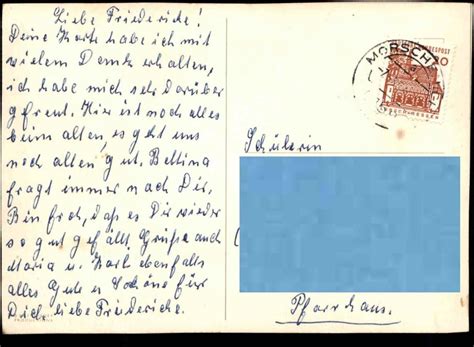 Liebe Friederike!
Deine Karte habe ich mit
vielem Dank erhalten,
ich habe mich sehr darüber
gefreut. Hier ist noch alles
beim alten, es geht uns
noch allen gut. Bettina
fragt immer nach Dir.
Bin froh, daß es Dir wieder
so gut gefällt. Grüße auch
Maria u. Karl ebenfalls
alles Gute u. Schöne für
Dich, liebe Friederike.
MORSCH
BUNDESPOST
Schülerin
Pfarrhaus.